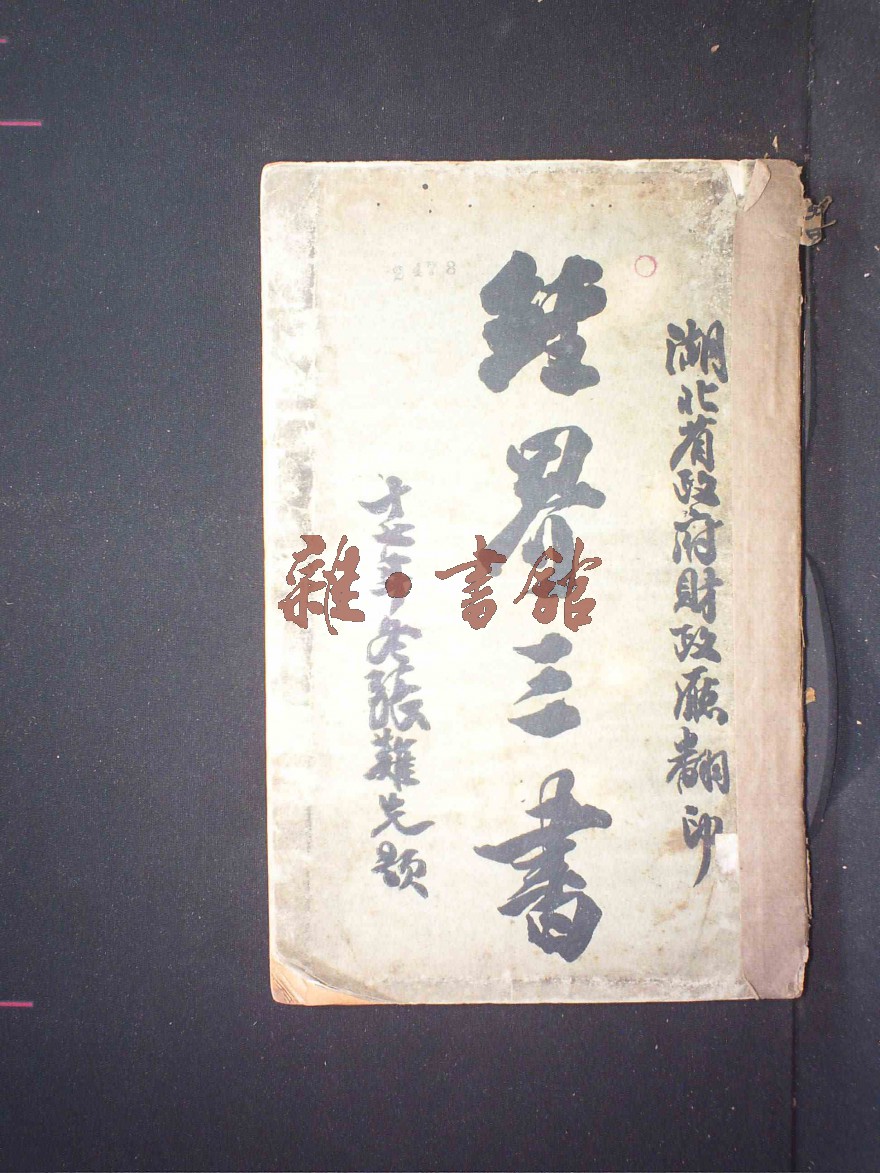 湖北省政府財政廳翻印
經界三書
十七年冬張難先題
2478
雜·書館